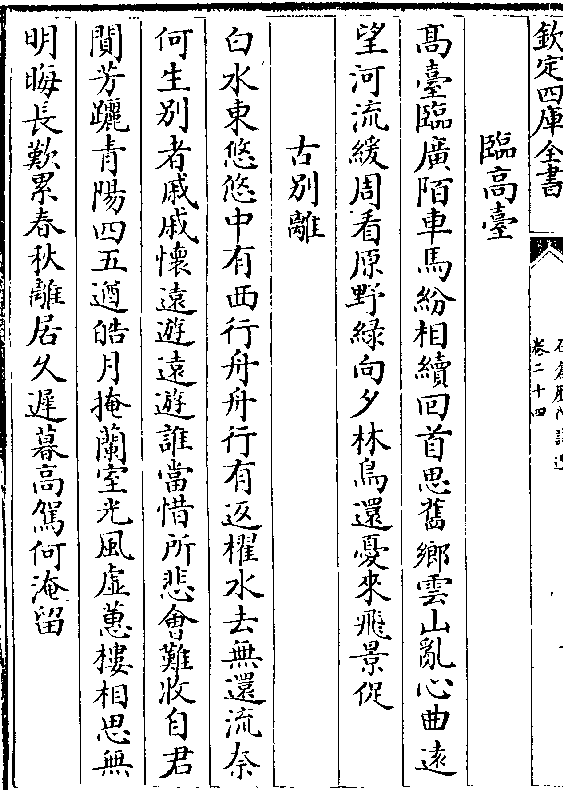 欽定四庫全書
卷二十四
臨高臺
髙臺臨廣陌車馬紛相續回首思舊鄉雲山亂心曲遠
望河流緩周看原野緑向夕林鳥還憂來飛景促
古别離
白水東悠悠中有西行舟舟行有返櫂水去無還流奈
何生别者戚戚懷遠遊遠遊誰當惜所悲會難收自君
閒芳躧青陽四五遒皓月掩蘭室光風虛蕙樓相思無
明晦長歎累春秋離居久遲暮高駕何淹留